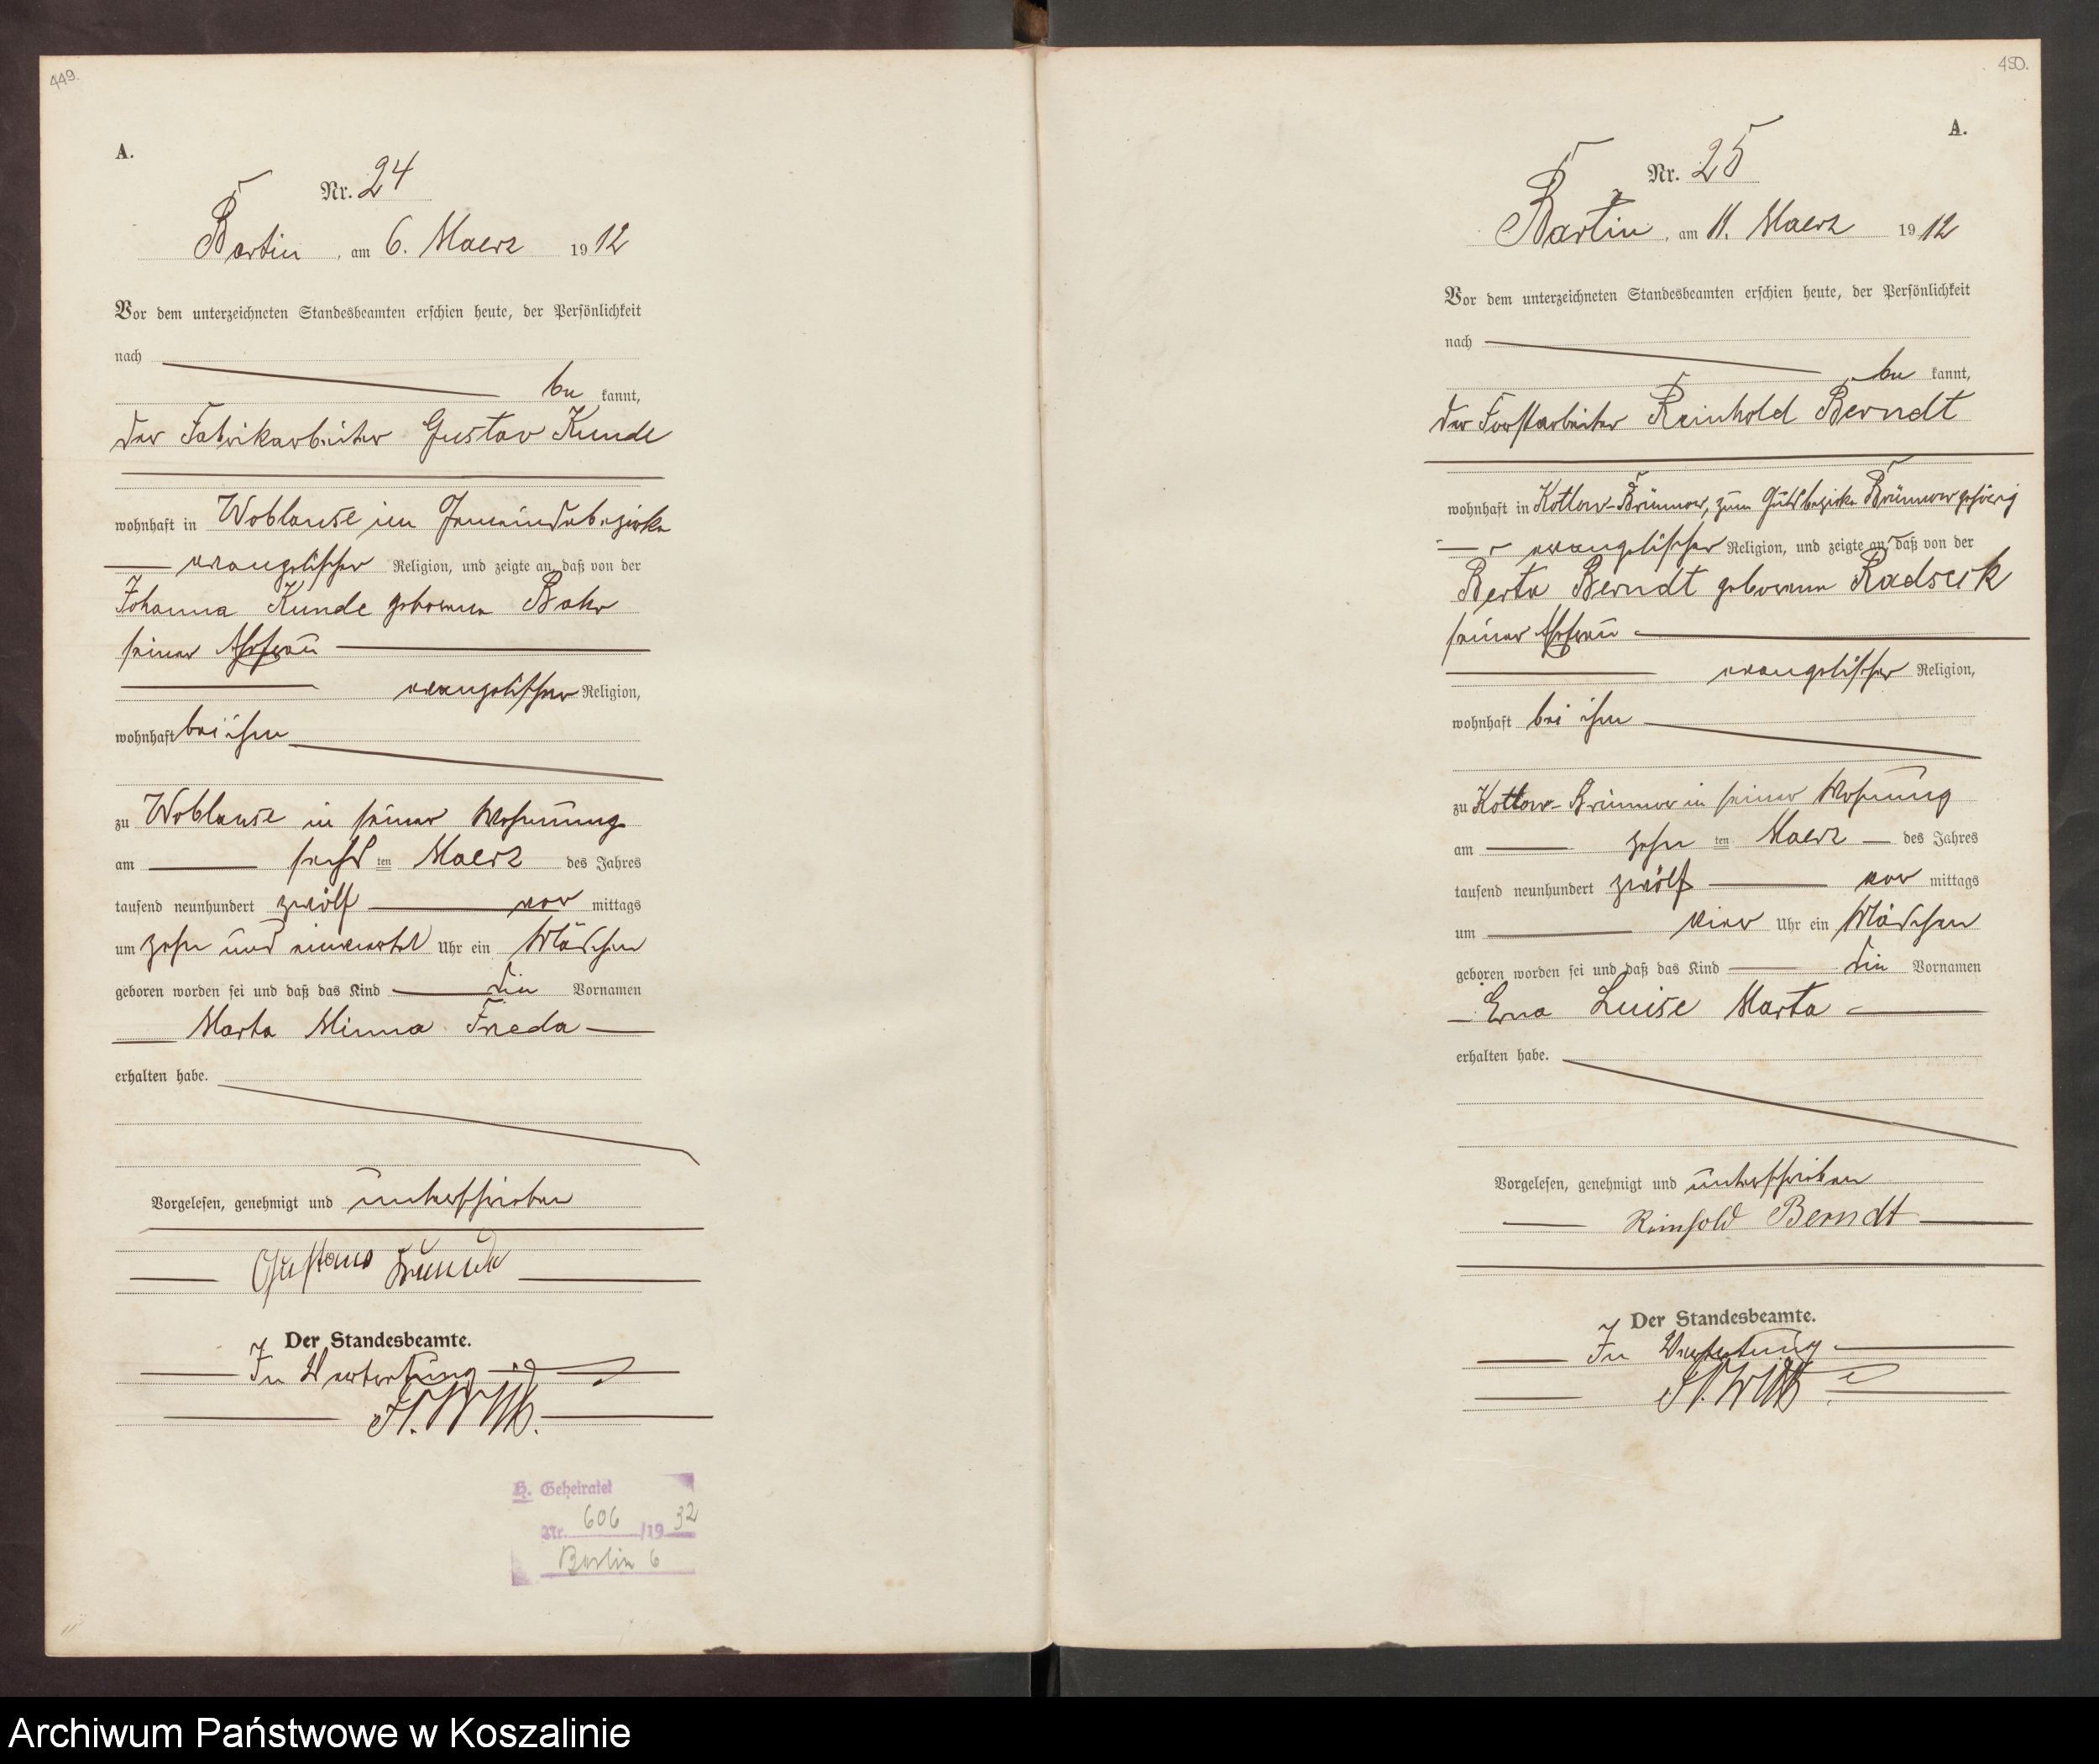 449.
A.
Nr. 24
Bartin, am 6. Maerz 1912
Vor dem unterzeichneten Standesbeamten erschien heute, der Persönlichkeit
nach
be kannt,
der Fabrikarbeiter Gustav Kunde
wohnhaft in Woblanse im Gemeindebezirke
evangelischer Religion, und zeigte an, daß von der
Johanna Kunde geborenen Bahr
seiner Ehefrau
evangelischer Religion,
wohnhaft bei ihm
zu Woblanse in seiner Wohnung
am sechs ten Maerz des Jahres
tausend neunhundert zwölf vor mittags
um zehn und einviertel Uhr ein Mädchen
geboren worden sei und daß das Kind die Vornamen
Marta Minna Frieda
erhalten habe.
Vorgelesen, genehmigt und unterschrieben
Gustav Kunde
Der Standesbeamte.
In Vertretung
H. Geheiratet
Nr. 606/1932
Berlin 6
450.
A.
Nr. 25
Bartin, am 11. Maerz 1912
Vor dem unterzeichneten Standesbeamten erschien heute, der Persönlichkeit
nach
be kannt,
der Forstarbeiter Reinhold Berndt
wohnhaft in Kottow-Brünnow, zum Gutsbezirke Brünnow gehörig
evangelischer Religion, und zeigte an, daß von der
Berta Berndt geborenen Radseck
seiner Ehefrau
evangelischer Religion,
wohnhaft bei ihm
zu Kottow-Brünnow in seiner Wohnung
am zehn ten Maerz des Jahres
tausend neunhundert zwölf vor mittags
um vier Uhr ein Mädchen
geboren worden sei und daß das Kind die Vornamen
Erna Luise Marta
erhalten habe.
Vorgelesen, genehmigt und unterschrieben
Reinhold Berndt
Der Standesbeamte.
In Vertretung
Archiwum Państwowe w Koszalinie